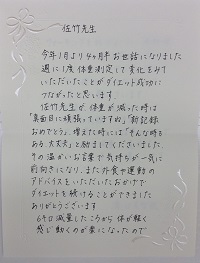 佐竹先生
今年1月より4ヶ月半お世話になりました
週に1度体重測定して変化をみて
いただいたことがダイエット成功に
つながったと思います。
佐竹先生が、体重が減った時は
「真面目に頑張っていますね」「新記録
おめでとう」、増えた時には「そんな時も
ある、大丈夫」と励ましてくださいました。
その温かいお言葉で気持ちが一気に
前向きになり、また外食や運動の
アドバイスをいただいたおかげで
ダイエットを続けることができました
ありがとうございます
6キロ減量したころから体が軽く
感じ動くのが楽になったので